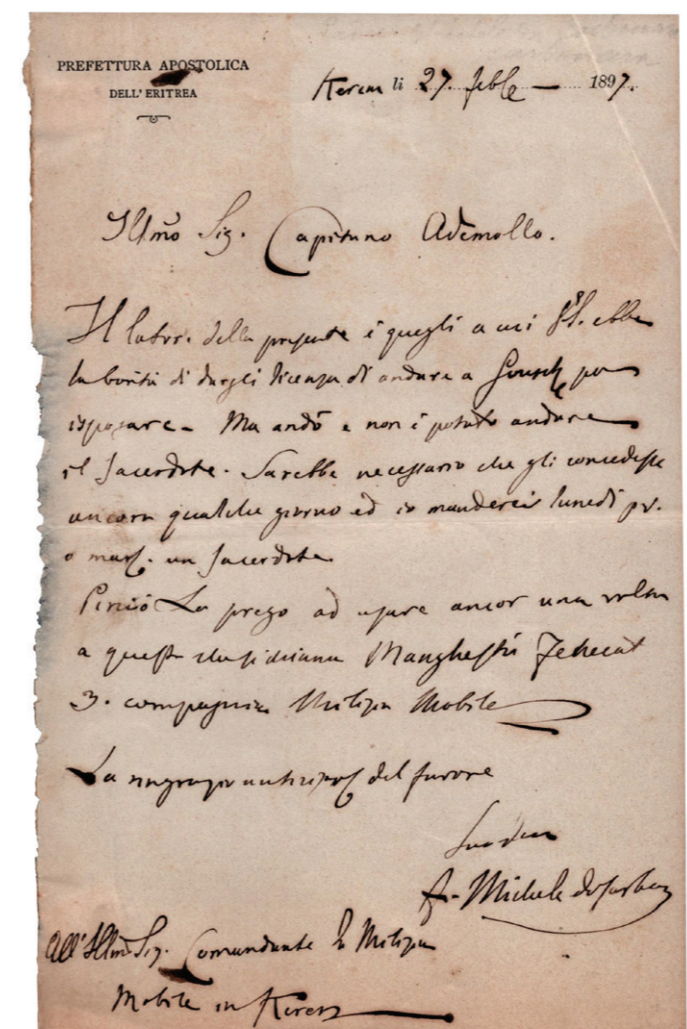 PREFETTURA APOSTOLICA
DELL' ERITREA
Keren li 27. febb.e 1897.
Illmo Sig. Capitano Ademollo.
Il lator. della presente è quegli a cui V.S. ebbe
la bontà di dargli licenza di andare a per
isposare - Ma andò e non è potuto andare
il Sacerdote. Sarebbe necessario che gli concedesse
ancora qualche giorno ed io manderei lunedì pr.
o mart. un Sacerdote.
Perciò La prego ad usare ancor una volta
a questo
3. compagnia Milizia Mobile
La ringrazio del favore
Suo
f. Michele da Carbonara
All'Illmo Sig. Comandante la Milizia
Mobile in Keren